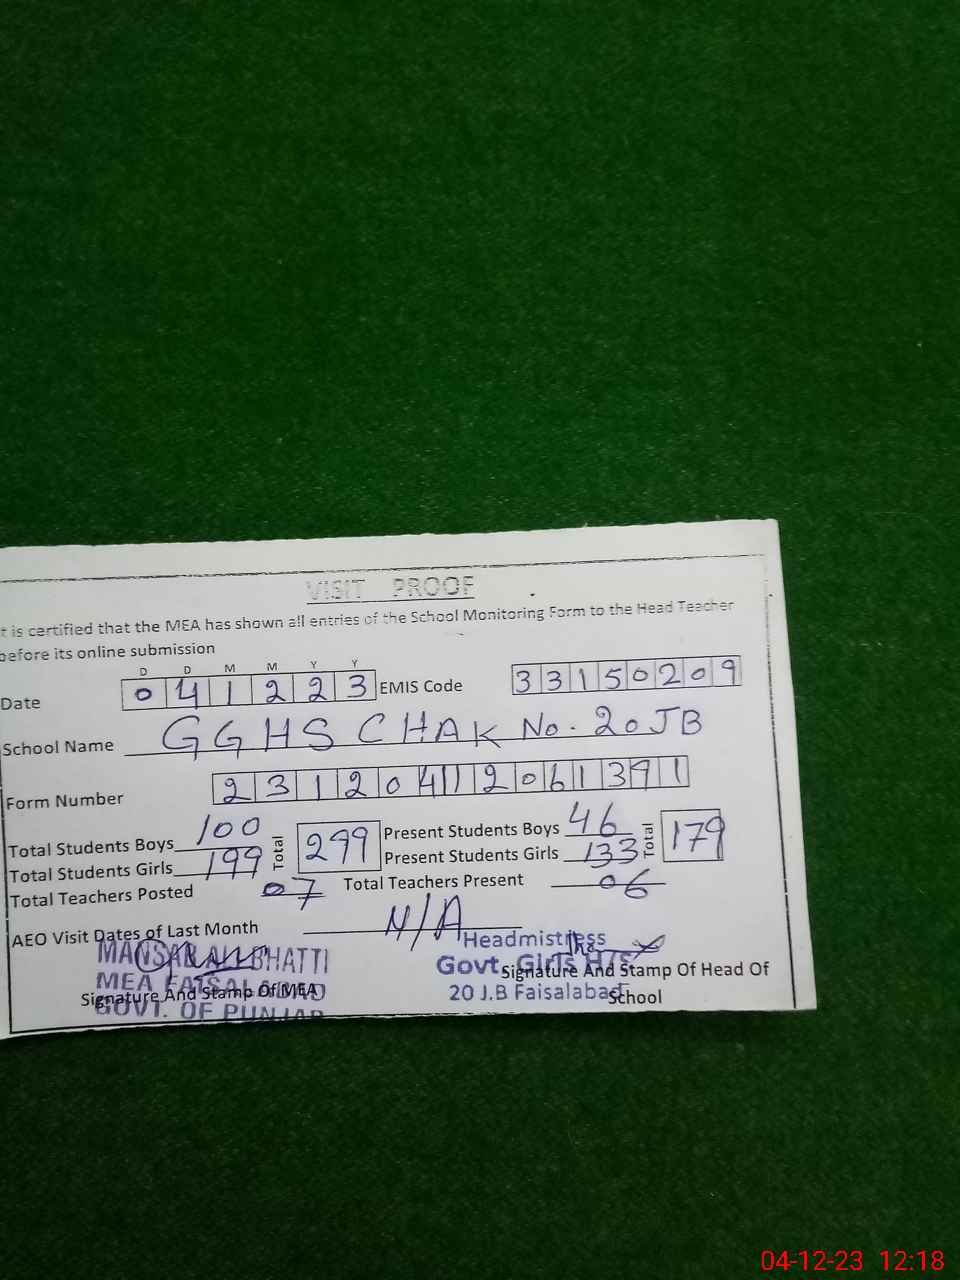 VISIT PROOF
t is certified that the MEA has shown all entries of the School Monitoring Form to the Head Teacher
before its online submission
D D M M Y Y
Date 041223 EMIS Code 33150209
School Name GGHS CHAK No. 20 JB
Form Number 231204112061391
Total Students Boys 100 Total 299 Present Students Boys 46 Total 179
Total Students Girls 199 Present Students Girls 133
Total Teachers Posted 07 Total Teachers Present 06
AEO Visit Dates of Last Month N/A
MANSAR ALI BHATTI
MEA FAISALABAD
GOVT. OF PUNJAB
Signature And Stamp Of MEA
Headmistress
Govt. Girls H/S
20 J.B Faisalabad
Signature And Stamp Of Head Of
School
04-12-23 12:18